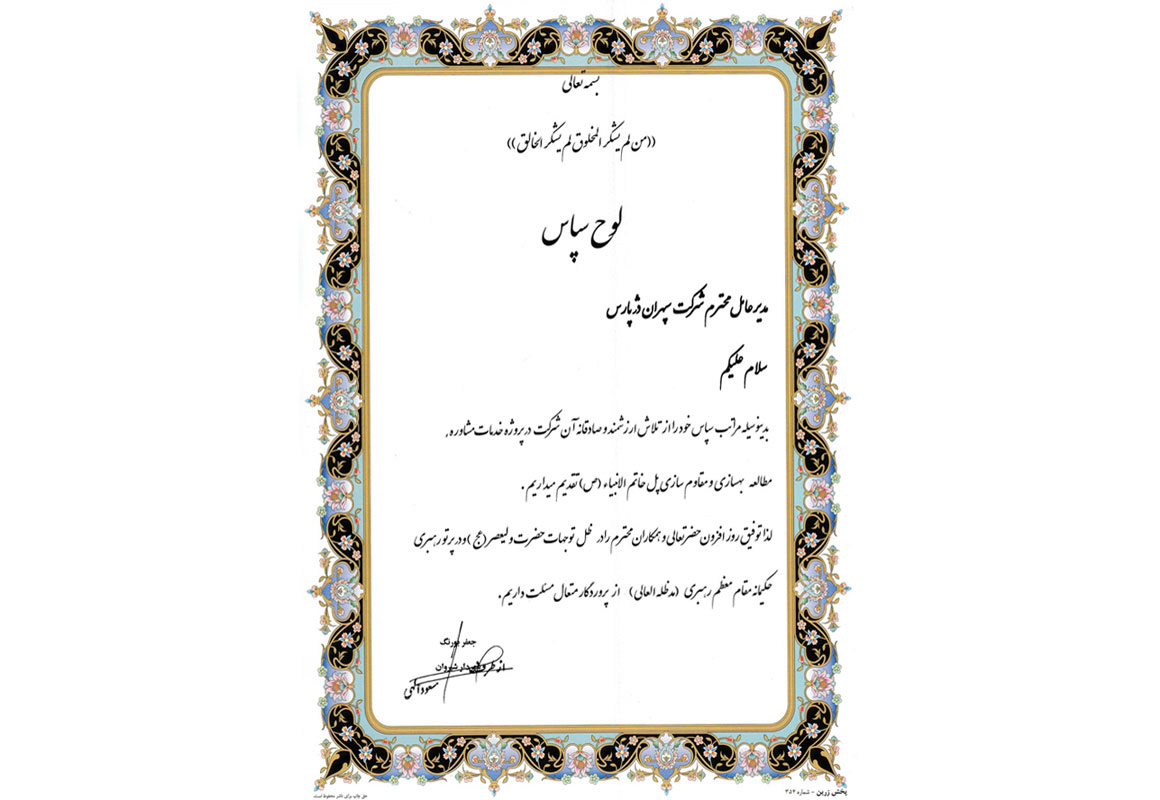 بسمه تعالی
((من لم یشکر المخلوق لم یشکر الخالق))
لوح سپاس
مدیرعامل محترم شرکت سهران دژ پارس
سلام علیکم
بدینوسیله مراتب سپاس خود را از تلاش ارزشمند و صادقانه آن شرکت در پروژه خدمات مشاوره،
مطالعه بهسازی و مقاوم سازی پل خاتم الانبیاء (ص) تقدیم میداریم .
لذا توفیق روز افزون حضرتعالی و همکاران محترم را در ظل توجهات حضرت ولیعصر(عج) و در پرتو رهبری
حکیمانه مقام معظم رهبری (مدظله العالی) از پروردگار متعال مسئلت داریم.
جعفر پورنگ
از طرف
شیروان
مسعود الهی
پخش زرین - شماره ۲۵۲
حق چاپ برای ناشر محفوظ است